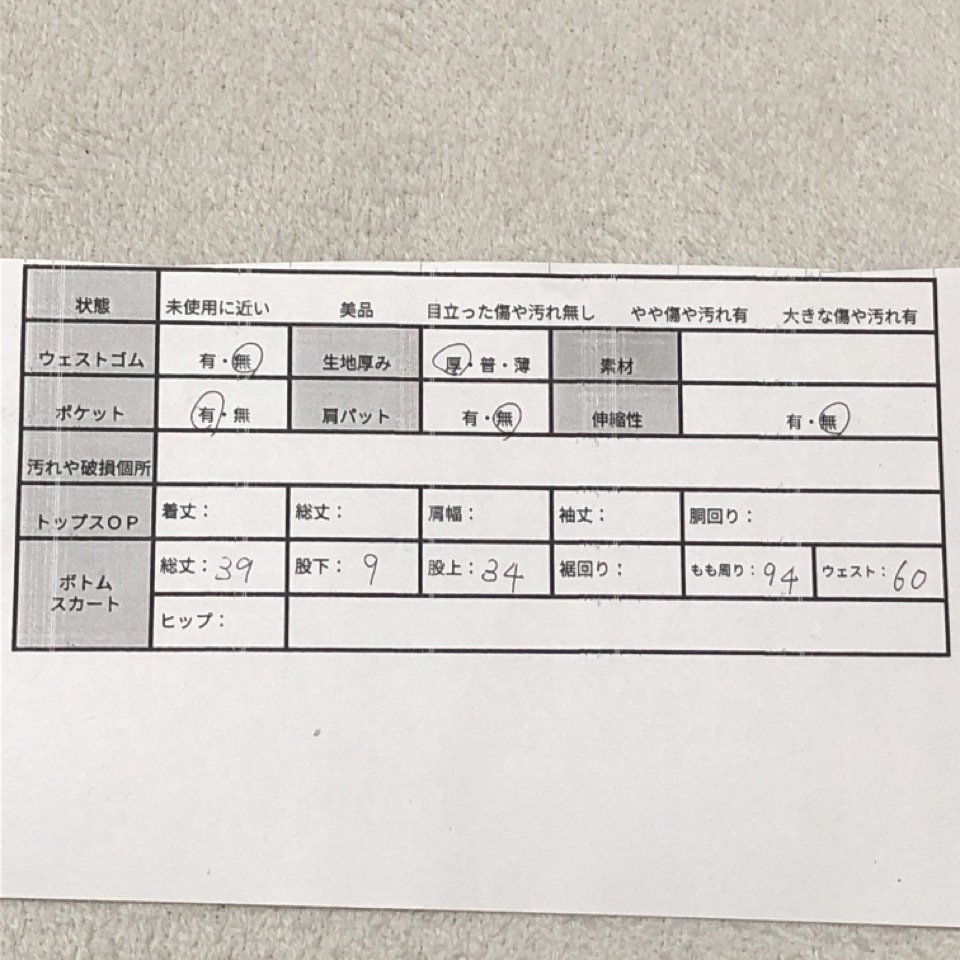 状態 未使用に近い 美品 目立った傷や汚れ無し やや傷や汚れ有 大きな傷や汚れ有
ウェストゴム 有・無 生地厚み 厚・普・薄 素材
ポケット 有・無 肩パット 有・無 伸縮性 有・無
汚れや破損個所
トップスOP 着丈： 総丈： 肩幅： 袖丈： 胴回り：
ボトム
スカート
総丈：39 股下：9 股上：34 裾回り： もも周り：94 ウェスト：60
ヒップ：